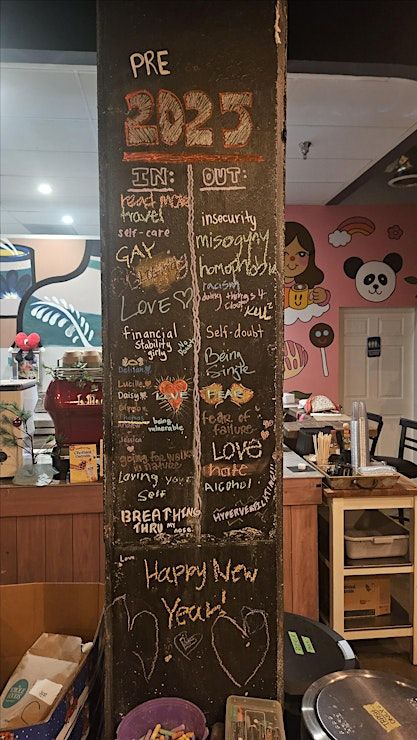 PRE
2025
IN:
read more
travel
self-care
GAY
LOVE
financial
stability
girly
Delilah
Lucille
Daisy
Thomas
Jessica
LOVE
being
vulnerable
going for walks
in nature
Loving your
Self
BREATHING
THRU my
nose.
OUT:
insecurity
misogyny
homophobia
racism
doing things 4
clout
Self-doubt
Being
Single
HEART
fear of
failure
LOVE
hate
Alcohol
HYPERVENTILATING!!!
Love,
Happy New
Year!